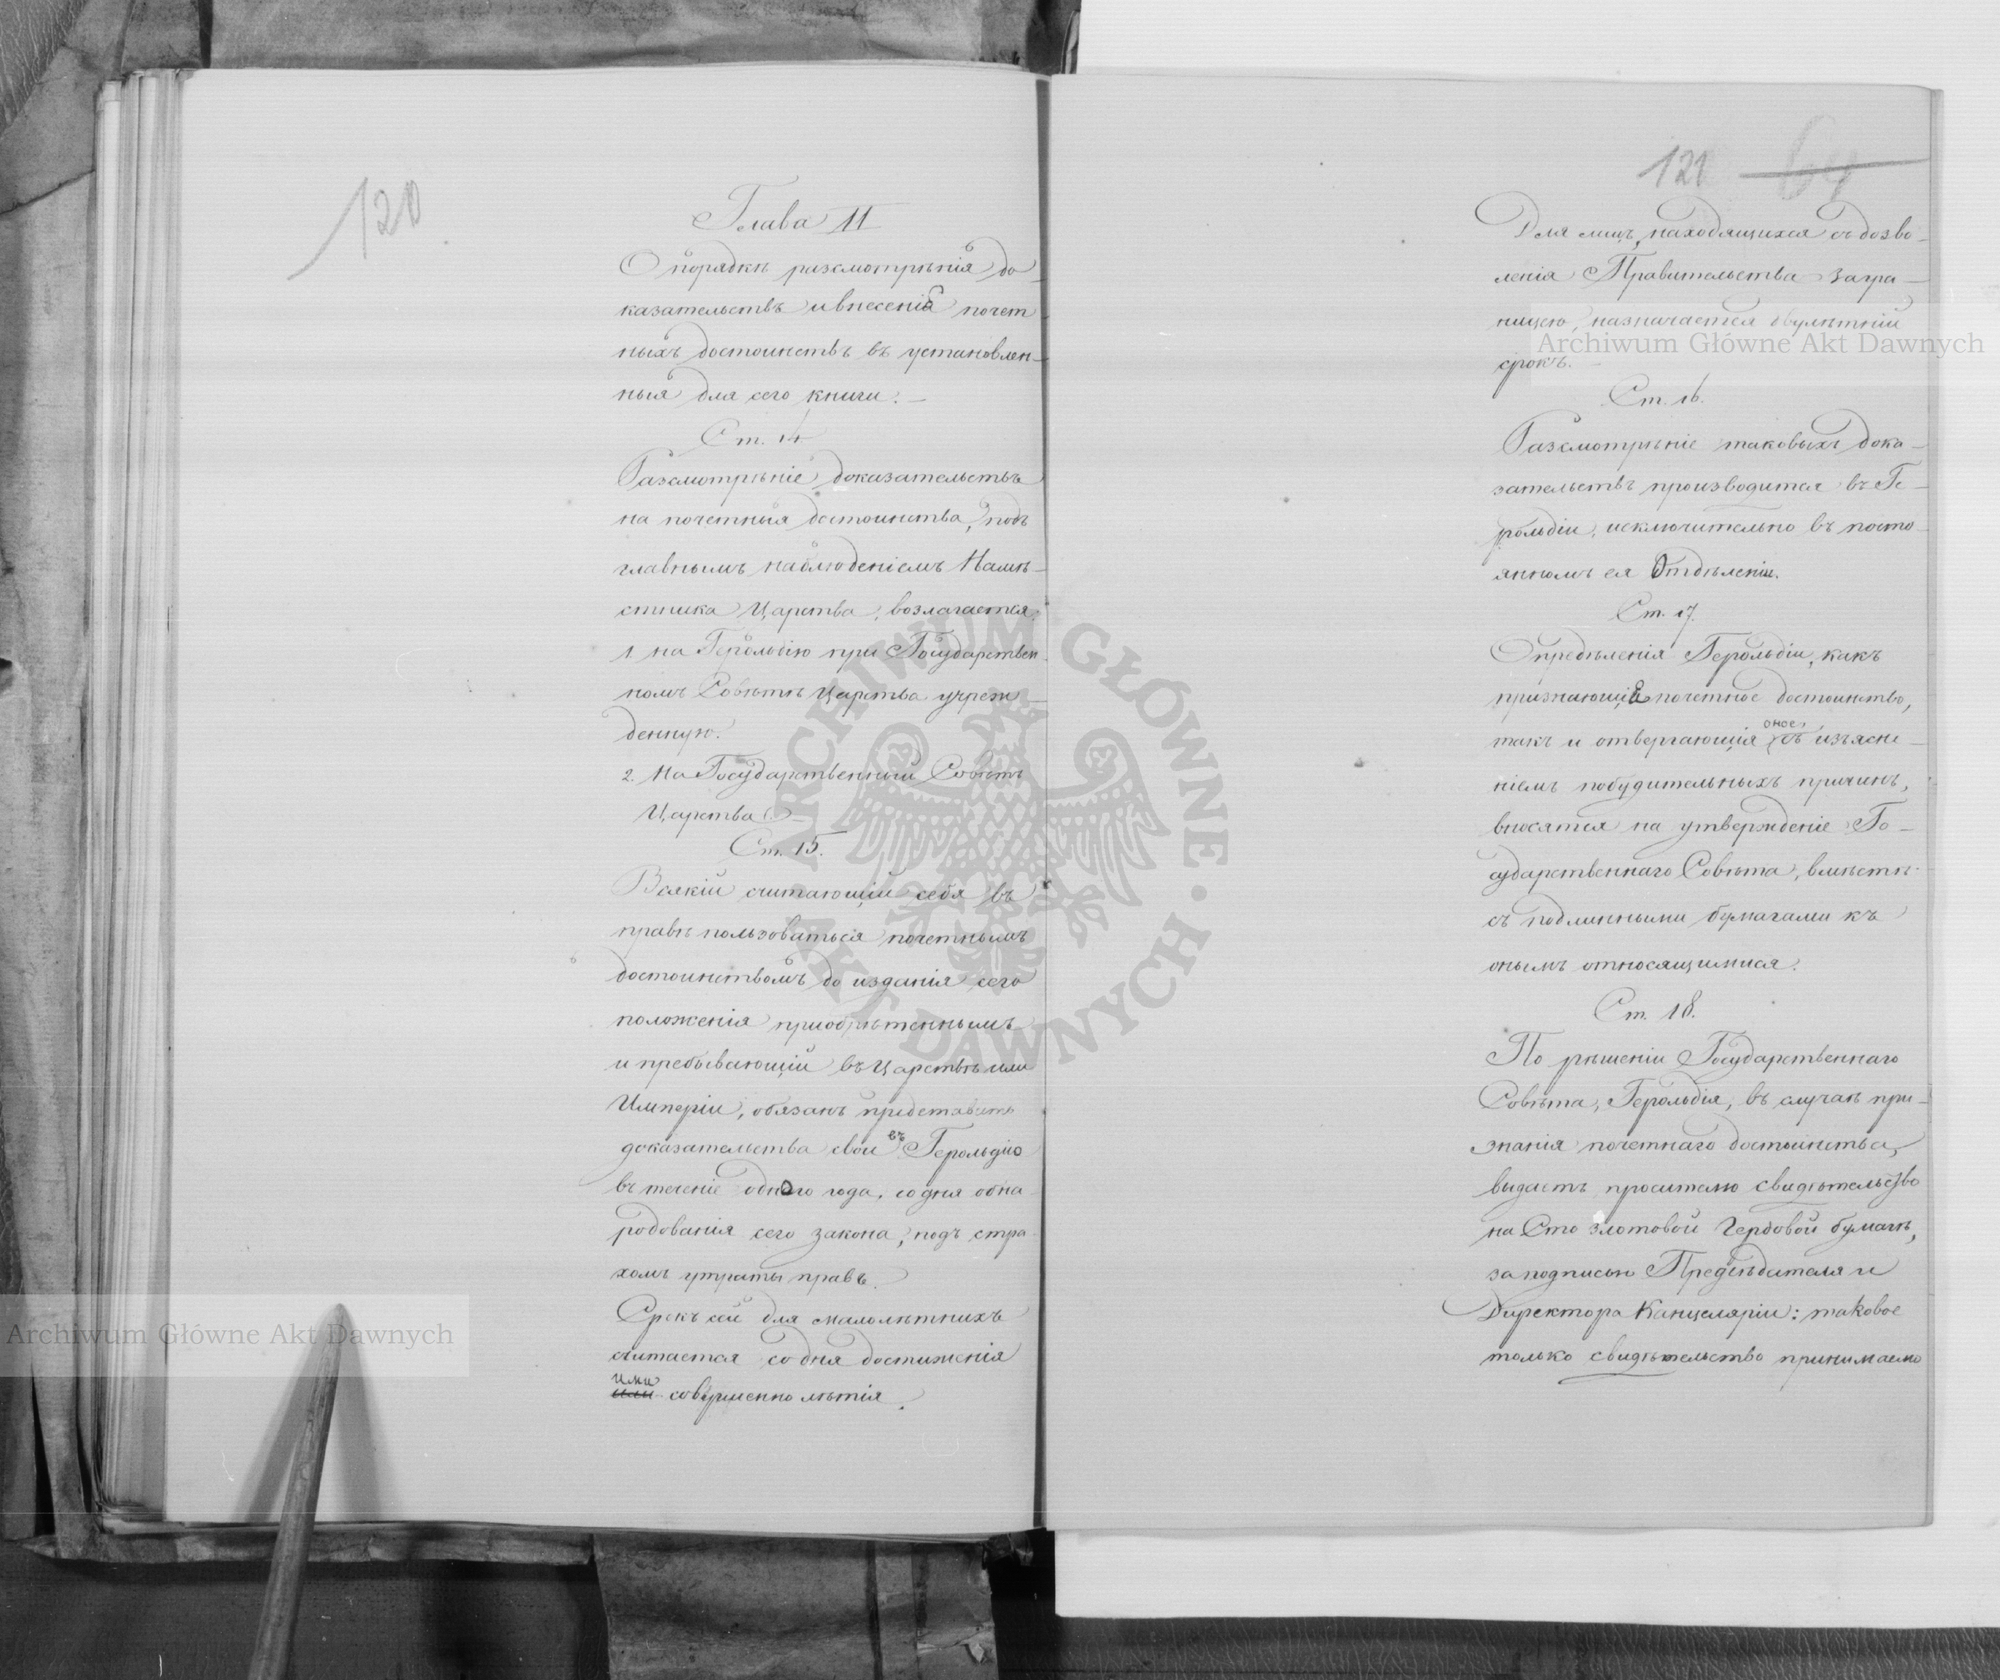 120
Глава II
О порядкѣ разсмотрѣнія до-
казательствъ и внесенія почет
ныхъ достоинствъ въ установлен-
ныя для сего книги.—
Ст. 14
Разсмотрѣніе доказательствъ
на почетныя достоинства, подъ
главнымъ наблюденіемъ Намѣ-
стника Царства, возлагается:
1. на Герольдію при Государствен
номъ Совѣтѣ Царства учреж-
денную.
2. На Государственный Совѣтъ
Царства.
Ст. 15.
Всякій считающій себя въ
правѣ пользоваться почетнымъ
достоинствомъ до изданія сего
положенія пріобрѣтеннымъ
и пребывающій въ Царствѣ или
Имперіи, обязанъ представить
доказательства свои въ Герольдію
въ теченіе одного года, со дня обна-
родованія сего закона, подъ стра-
хомъ утраты правъ.
Срокъ сей для малолѣтнихъ
считается со дня достиженія
ими
или совершеннолѣтія.
121 64
Для лицъ, находящихся съ дозво-
ленія Правительства загра-
ницею, назначается двулѣтній
срокъ.
Ст. 16.
Разсмотрѣніе таковыхъ дока-
зательствъ производится въ Ге-
рольдіи, исключительно въ посто-
янномъ ея Отдѣленіи.
Ст. 17.
Опредѣленія Герольдіи, какъ
признающія почетное достоинство,
оное,
такъ и отвергающія съ изъясне-
ніемъ побудительныхъ причинъ,
вносятся на утвержденіе Го-
сударственнаго Совѣта, вмѣстѣ
съ подлинными бумагами къ
онымъ относящимися.
Ст. 18.
По рѣшеніи Государственнаго
Совѣта, Герольдія, въ случаѣ при-
знанія почетнаго достоинства,
выдаетъ просителю свидѣтельство
на Сто злотовой Гербовой бумагѣ,
за подписью Предсѣдателя и
Директора Канцеляріи: таковое
только свидѣтельство принимаемо
Archiwum Główne Akt Dawnych
Archiwum Główne Akt Dawnych
ARCHIWUM GŁÓWNE · AKT DAWNYCH ·